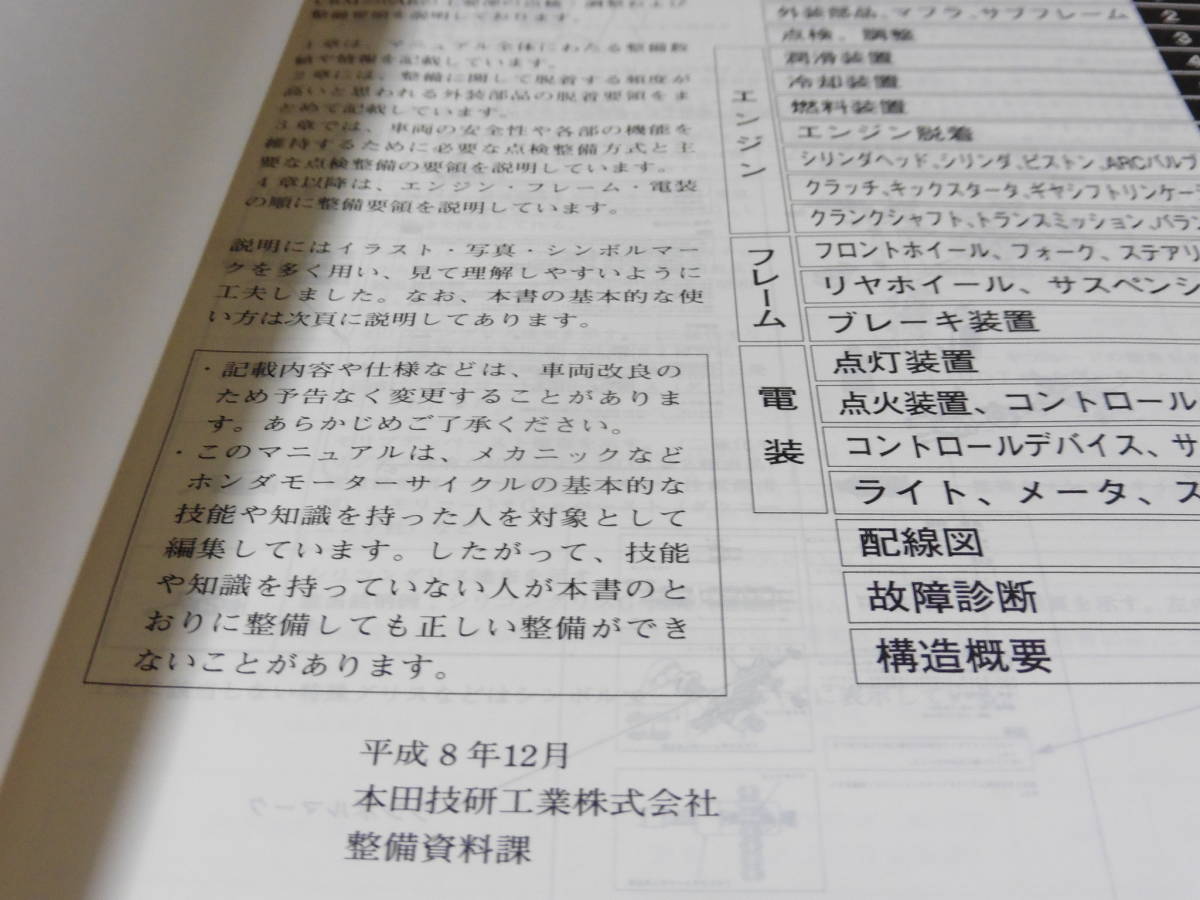 整備要領を説明しております。
1章は、マニュアル全体にわたる整備数
値や情報を記載しています。
2章には、整備に関して脱着する頻度が
高いと思われる外装部品の脱着要領をま
とめて記載しています。
3章では、車両の安全性や各部の機能を
維持するために必要な点検整備方式と主
要な点検整備の要領を説明しています。
4章以降は、エンジン・フレーム・電装
の順に整備要領を説明しています。
説明にはイラスト・写真・シンボルマー
クを多く用い、見て理解しやすいように
工夫しました。なお、本書の基本的な使
い方は次頁に説明してあります。
・記載内容や仕様などは、車両改良の
ため予告なく変更することがありま
す。あらかじめご了承ください。
・このマニュアルは、メカニックなど
ホンダモーターサイクルの基本的な
技能や知識を持った人を対象として
編集しています。したがって、技能
や知識を持っていない人が本書のと
おりに整備しても正しい整備ができ
ないことがあります。
平成8年12月
本田技研工業株式会社
整備資料課
外装部品、マフラ、サブフレーム
2
点検、調整
3
エンジン
潤滑装置
4
冷却装置
燃料装置
エンジン脱着
シリンダヘッド、シリンダ、ピストン、ARCバルブ
クラッチ、キックスタータ、ギヤシフトリンケー
クランクシャフト、トランスミッション、バラン
フレーム
フロントホイール、フォーク、ステアリ
リヤホイール、サスペンシ
ブレーキ装置
電装
点灯装置
点火装置、コントロール
コントロールデバイス、サ
ライト、メータ、ス
配線図
故障診断
構造概要